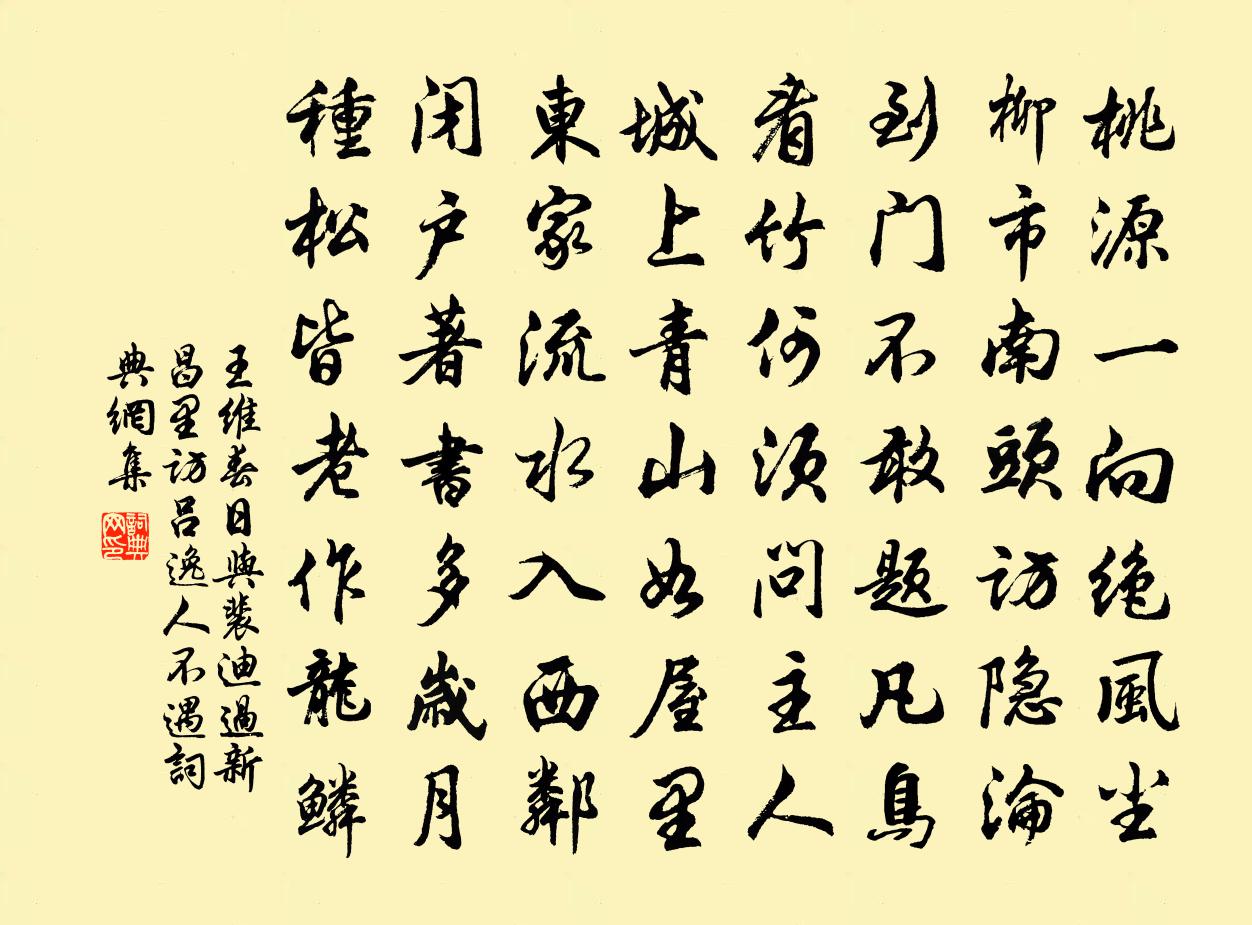 桃源一向绝風尘
柳市南頭访隐淪
到门不敢题凡鳥
看竹何须问主人
城上青山如屋里
東家流水入西鄰
闭户著書多歲月
種松皆老作龍鱗
王維春日與裴迪過新
昌里访吕逸人不遇詞
典網集
詞典
网印